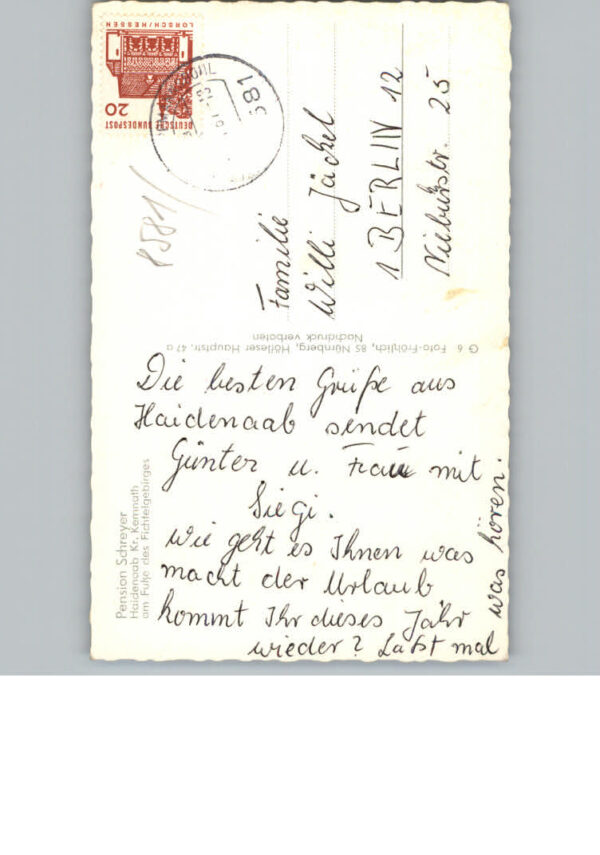 DEUTSCHE BUNDESPOST
20
LORSCH/HESSEN
8581/
Familie
Willi Jäckel
1 BERLIN 12
Niebuhrstr. 25
G 6 Foto-Fröhlich, 85 Nürnberg, Höfleser Hauptstr. 47 a
Nachdruck verboten
Pension Schreyer
Haidenaab Kr. Kemnath
am Fuße des Fichtelgebirges
Die besten Grüße aus
Haidenaab sendet
Günter u. Frau mit
Siegi.
Wie geht es Ihnen was
macht der Urlaub
kommt Ihr dieses Jahr
wieder? Laßt mal
was hören.